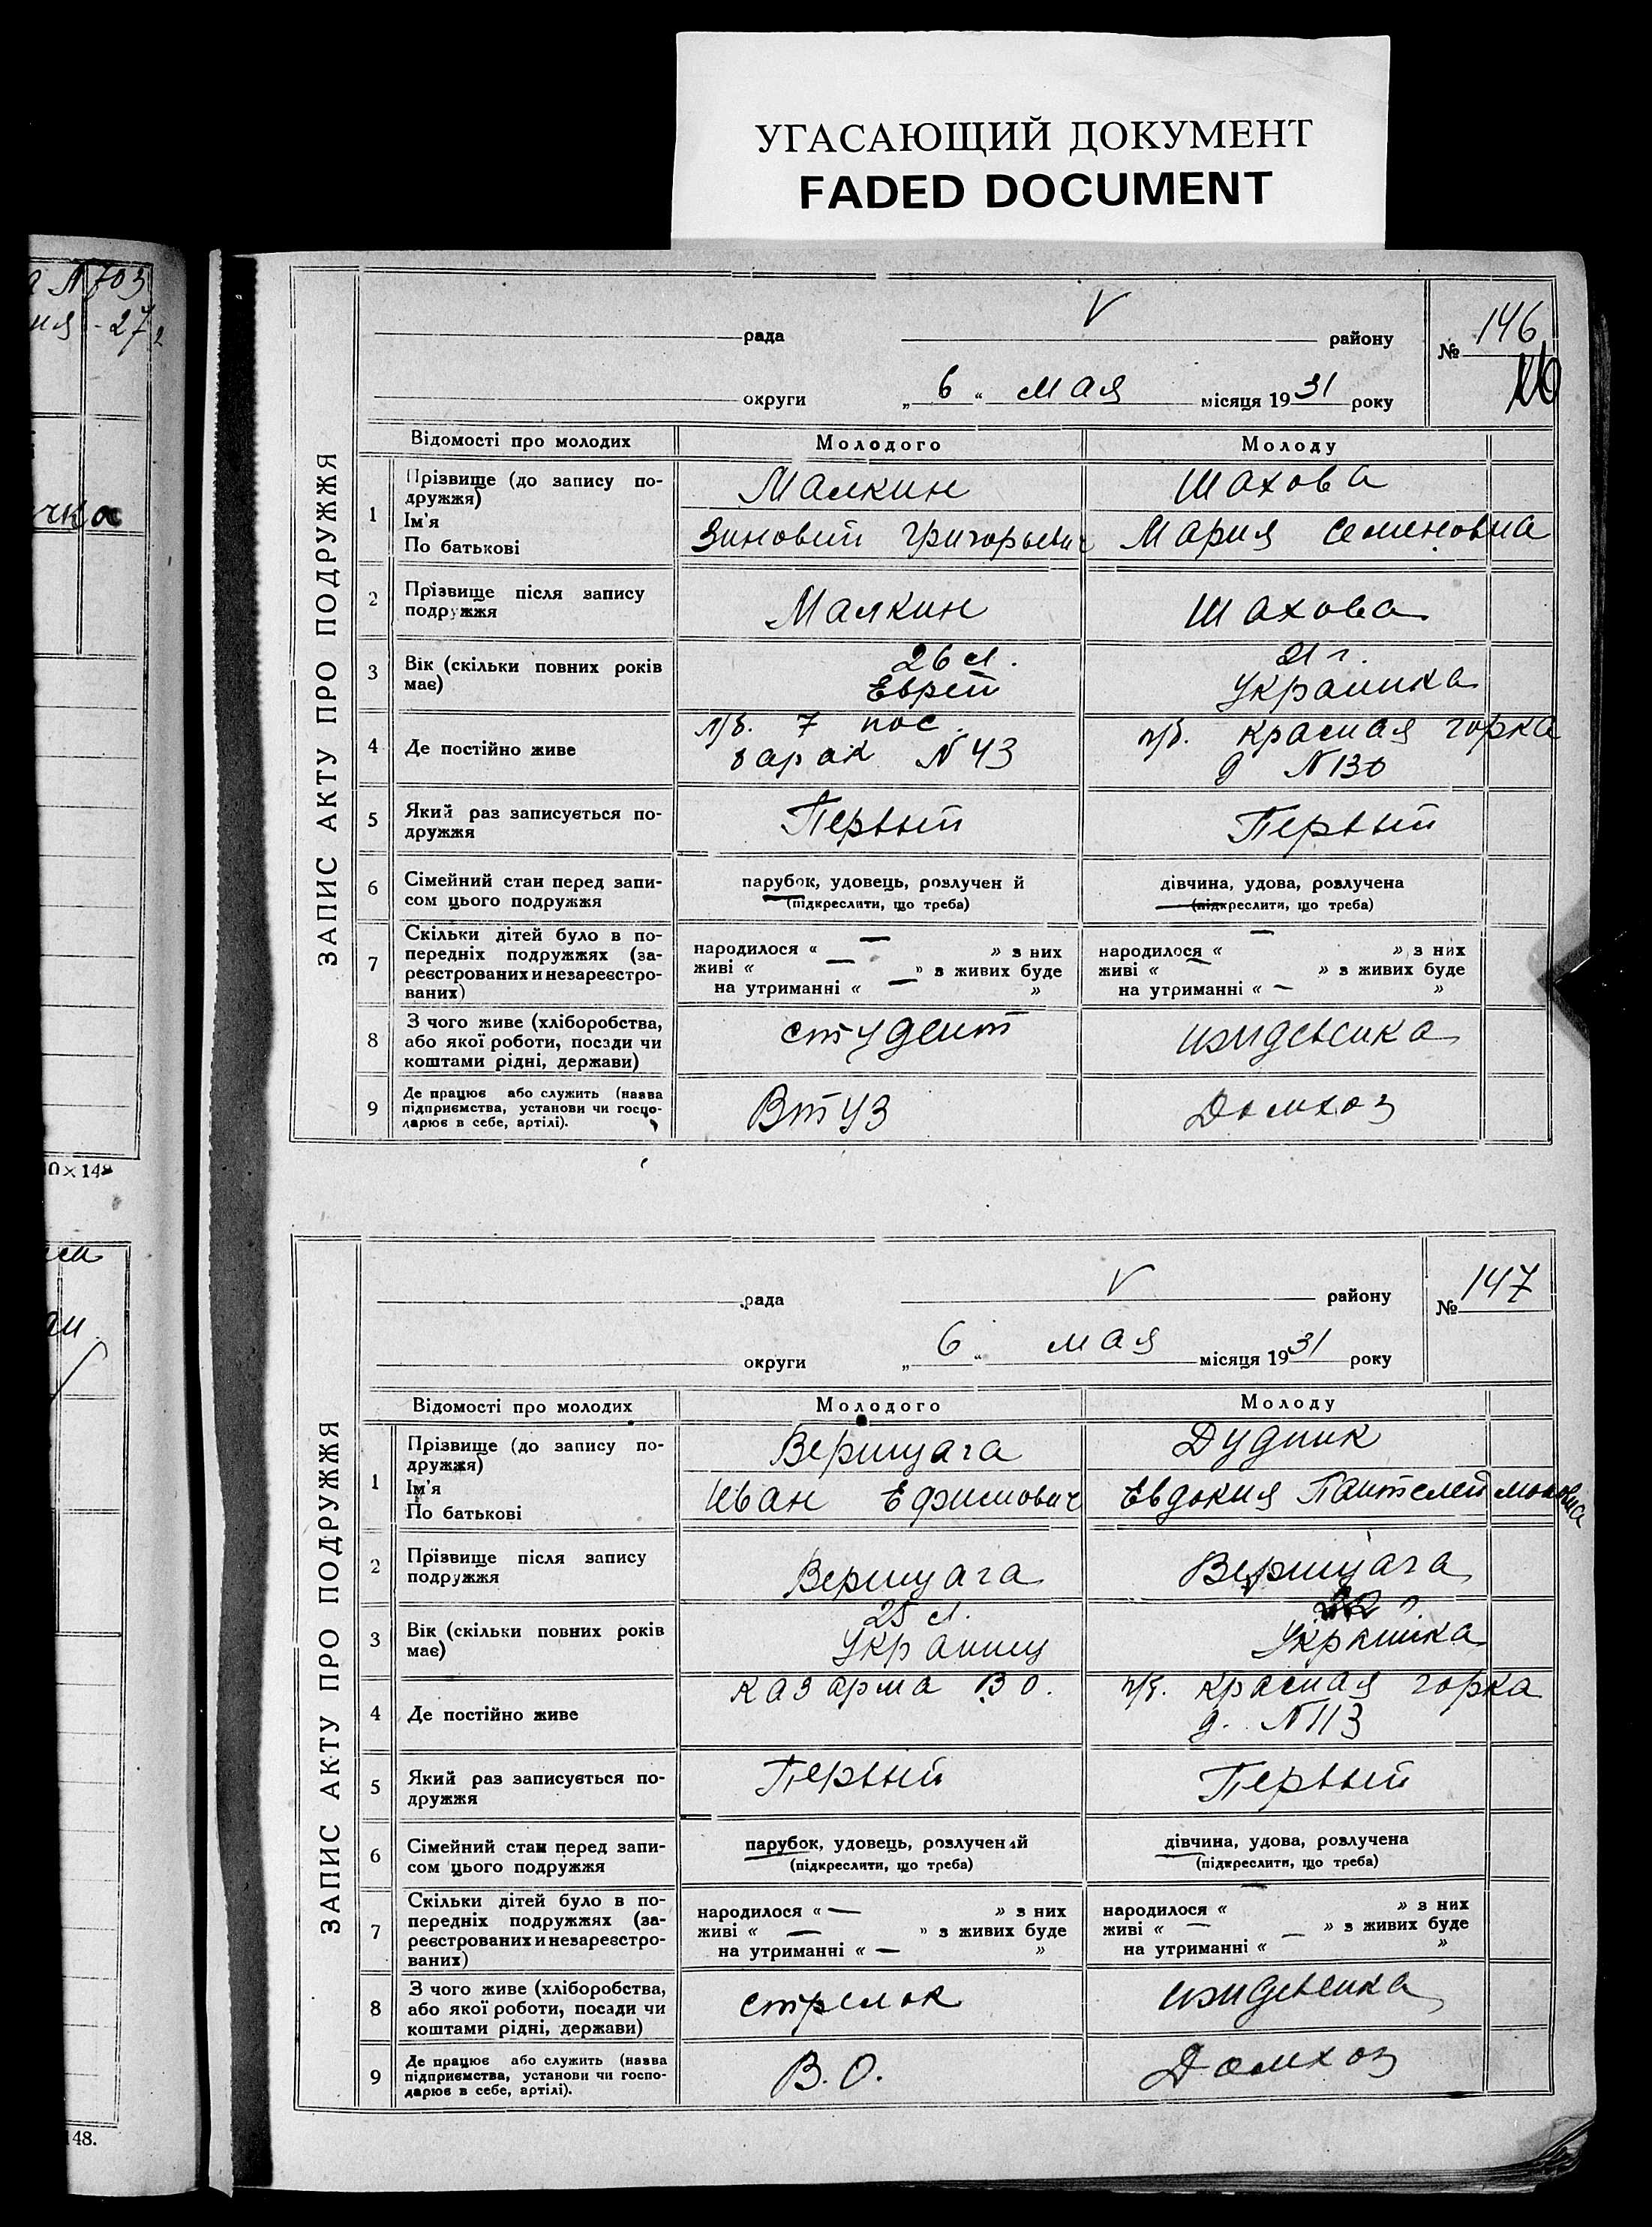 УГАСАЮЩИЙ ДОКУМЕНТ
FADED DOCUMENT
N 703
чка
0×148
148.
ЗАПИС АКТУ ПРО ПОДРУЖЖЯ
рада V району № 146
округи „ 6 " мая місяця 1931 року
Відомості про молодих Молодого Молоду
1 Прізвище (до запису по-
дружжя) Малкин Шахова
Ім'я
По батькові Зиновий Григорьевич Мария Семеновна
2 Прізвище після запису
подружжя Малкин Шахова
3 Вік (скільки повних років
має) 26 л. 21 г.
Еврей Украинка
4 Де постійно живе л/б. 7 пос. п/б. красная горка
барак N 43 д N 130
5 Який раз записується по-
дружжя Первый Первый
6 Сімейний стан перед запи-
сом цього подружжя
парубок, удовець, розлучен й дівчина, удова, розлучена
(підкреслити, що треба) (підкреслити, що треба)
7 Скільки дітей було в по-
передніх подружжях (за-
реєстрованих и незареєстро-
ваних)
народилося « — » з них народилося « — » з них
живі « — » з живих буде живі « — » з живих буде
на утриманні « — » на утриманні « — »
8 З чого живе (хліборобства,
або якої роботи, посади чи
коштами рідні, держави) студент иждевенка
9 Де працює або служить (назва
підприємства, установи чи госпо-
дарює в себе, артілі). Втуз Домхоз
ЗАПИС АКТУ ПРО ПОДРУЖЖЯ
рада V району № 147
округи „ 6 " мая місяця 1931 року
Відомості про молодих Молодого Молоду
1 Прізвище (до запису по-
дружжя) Верищага Дудник
Ім'я
По батькові Иван Ефимович Евдокия Пантелеймоновна
2 Прізвище після запису
подружжя Верищага Верищага
3 Вік (скільки повних років
має) 25 л. 22 г.
Украинец Украинка
4 Де постійно живе казарма В О. п/б. красная горка
д. N 113
5 Який раз записується по-
дружжя Первый Первый
6 Сімейний стан перед запи-
сом цього подружжя
парубок, удовець, розлучен й дівчина, удова, розлучена
(підкреслити, що треба) (підкреслити, що треба)
7 Скільки дітей було в по-
передніх подружжях (за-
реєстрованих и незареєстро-
ваних)
народилося « — » з них народилося « — » з них
живі « — » з живих буде живі « — » з живих буде
на утриманні « — » на утриманні « — »
8 З чого живе (хліборобства,
або якої роботи, посади чи
коштами рідні, держави) стрелок иждевенка
9 Де працює або служить (назва
підприємства, установи чи госпо-
дарює в себе, артілі). В. О. Домхоз